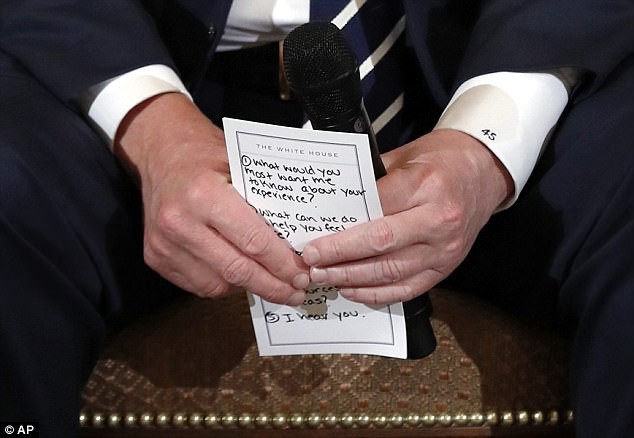 THE WHITE HOUSE
① What would you
most want me
to know about your
experience?
What can we do
help you feel
?
?
⑤ I hear you.
45
© AP